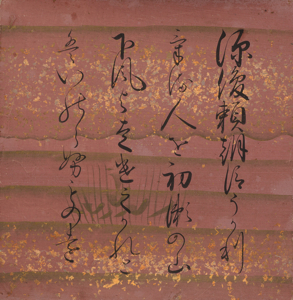 源俊頼朝臣うかり
ける人を初瀬の山
下風よはけしかれと
はいのらぬものを